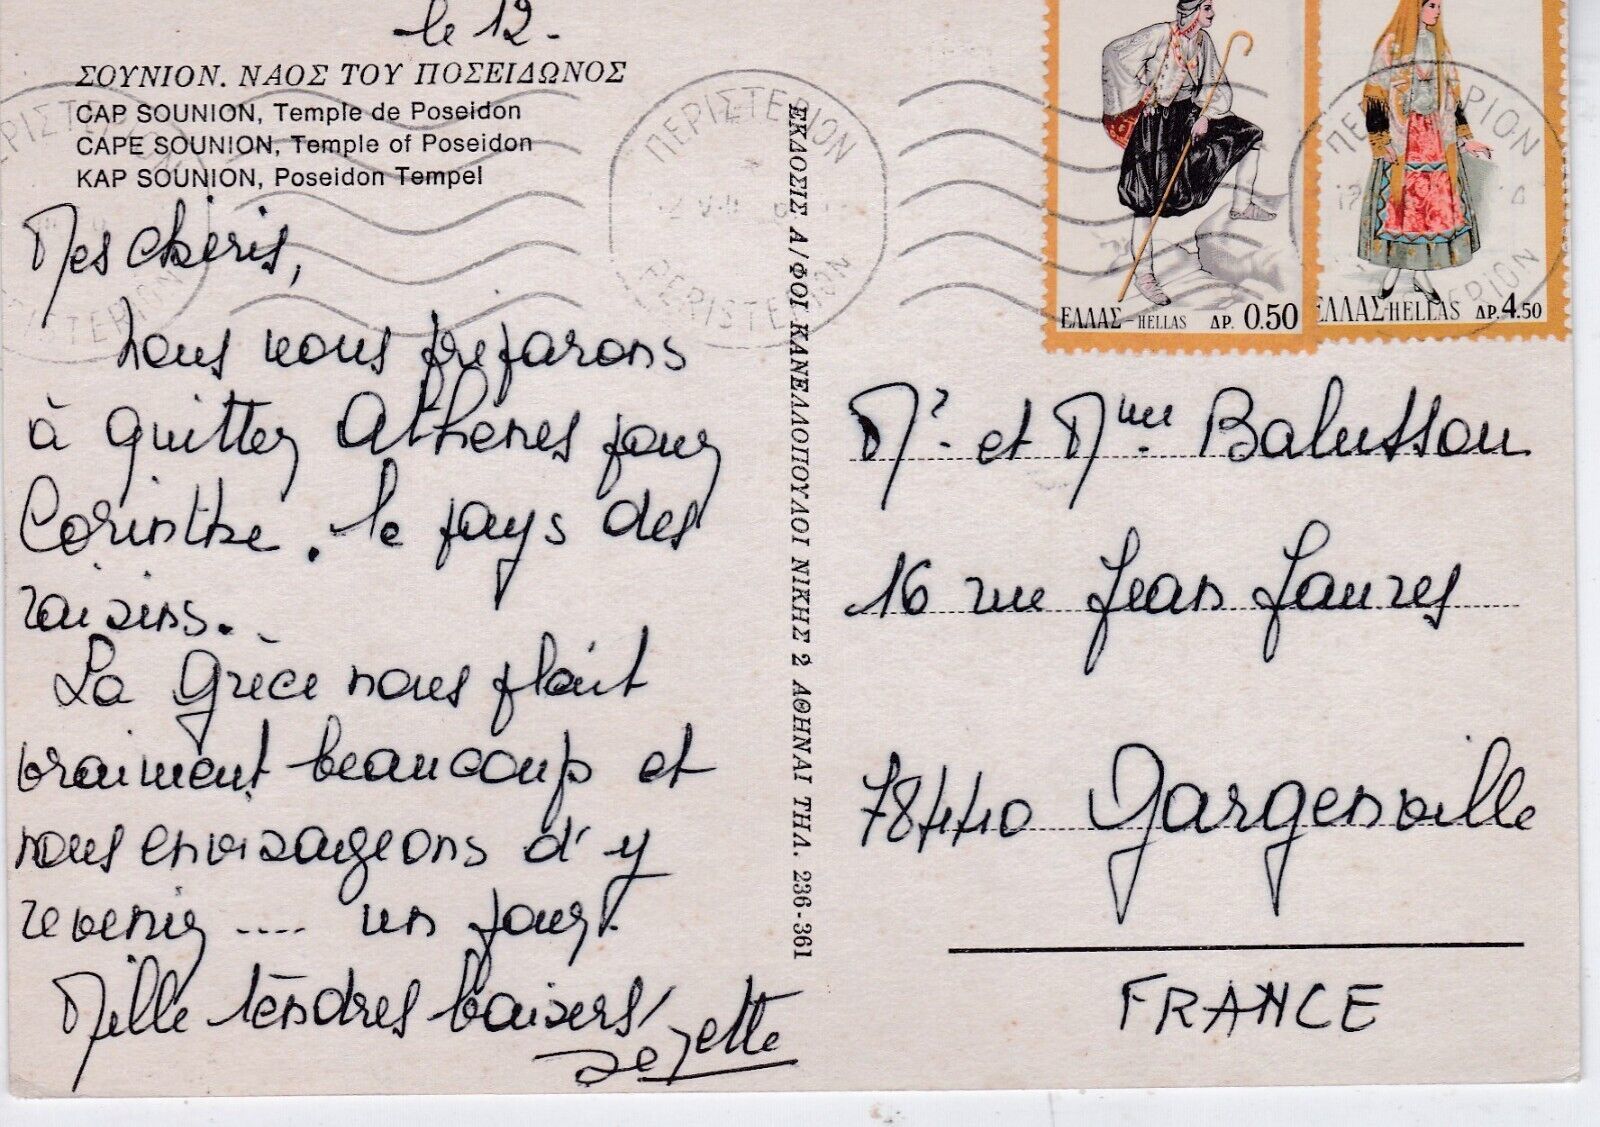 le 12.
ΣΟΥΝΙΟΝ. ΝΑΟΣ ΤΟΥ ΠΟΣΕΙΔΩΝΟΣ
CAP SOUNION, Temple de Poseidon
CAPE SOUNION, Temple of Poseidon
KAP SOUNION, Poseidon Tempel
Mes chéris,
Nous nous préparons
à quitter Athènes pour
Corinthe. le pays des
raisins..
La Grèce nous plait
vraiment beaucoup et
nous envisageons d'y
revenir .... un jour.
Mille tendres baisers
ΕΚΔΟΣΙΣ Α/ΦΟΙ ΚΑΝΕΛΛΟΠΟΥΛΟΙ ΝΙΚΗΣ 2 ΑΘΗΝΑΙ ΤΗΛ. 236-361
ΠΕΡΙΣΤΕΡΙΟΝ
PERISTERION
ΕΛΛΑΣ-HELLAS ΔΡ. 0.50
ΕΛΛΑΣ-HELLAS ΔΡ. 4.50
Mr. et Mme Balusson
16 rue Jean Jaures
78440 Gargenville
FRANCE